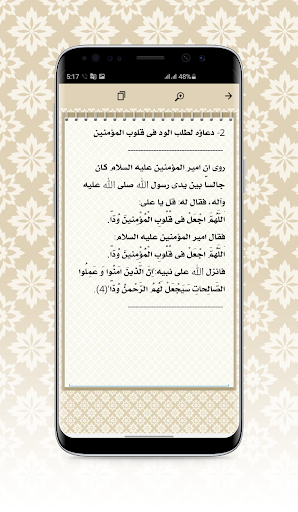 5:17
48%
2- دعاؤه لطلب الود فى قلوب المؤمنين
روى ان امير المؤمنين عليه السلام كان
جالساً بين يدى رسول الله صلى الله عليه
وآله، فقال له: قل يا على:
اَللّهُمَّ اجْعَلْ فى قُلُوبِ الْمُؤْمِنينَ وُدّاً.
فقال امير المؤمنين عليه السلام:
اَللّهُمَّ اجْعَلْ فى قُلُوبِ الْمُؤْمِنينَ وُدّاً.
فانزل الله على نبيه:'اِنَّ الَّذينَ امَنُوا وَ عَمِلُوا
الصَّالِحاتِ سَيَجْعَلُ لَهُمُ الرَّحْمنُ وُدّاً'(4).